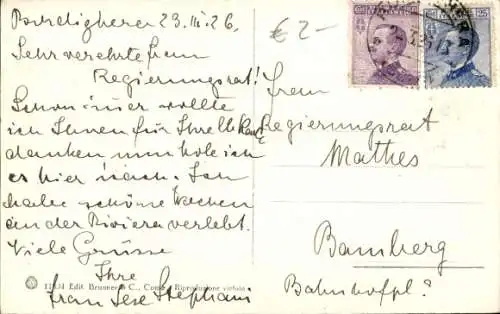 Bordighera 23. III. 26.
Sehr verehrte Frau
Regierungsrat!
Schon immer wollte
ich Ihnen für Ihre Karte
danken nun hole ich
es hier nach. Ich
habe schöne Wochen
an der Riviera verlebt.
Viele Grüsse
Ihre
Frau Stephani
€ 2-
25
Frau
Regierungsrat
Mathes
Bamberg
Bahnhofpl.?
Edit. Brunner & C., Como - Riproduzione vietata